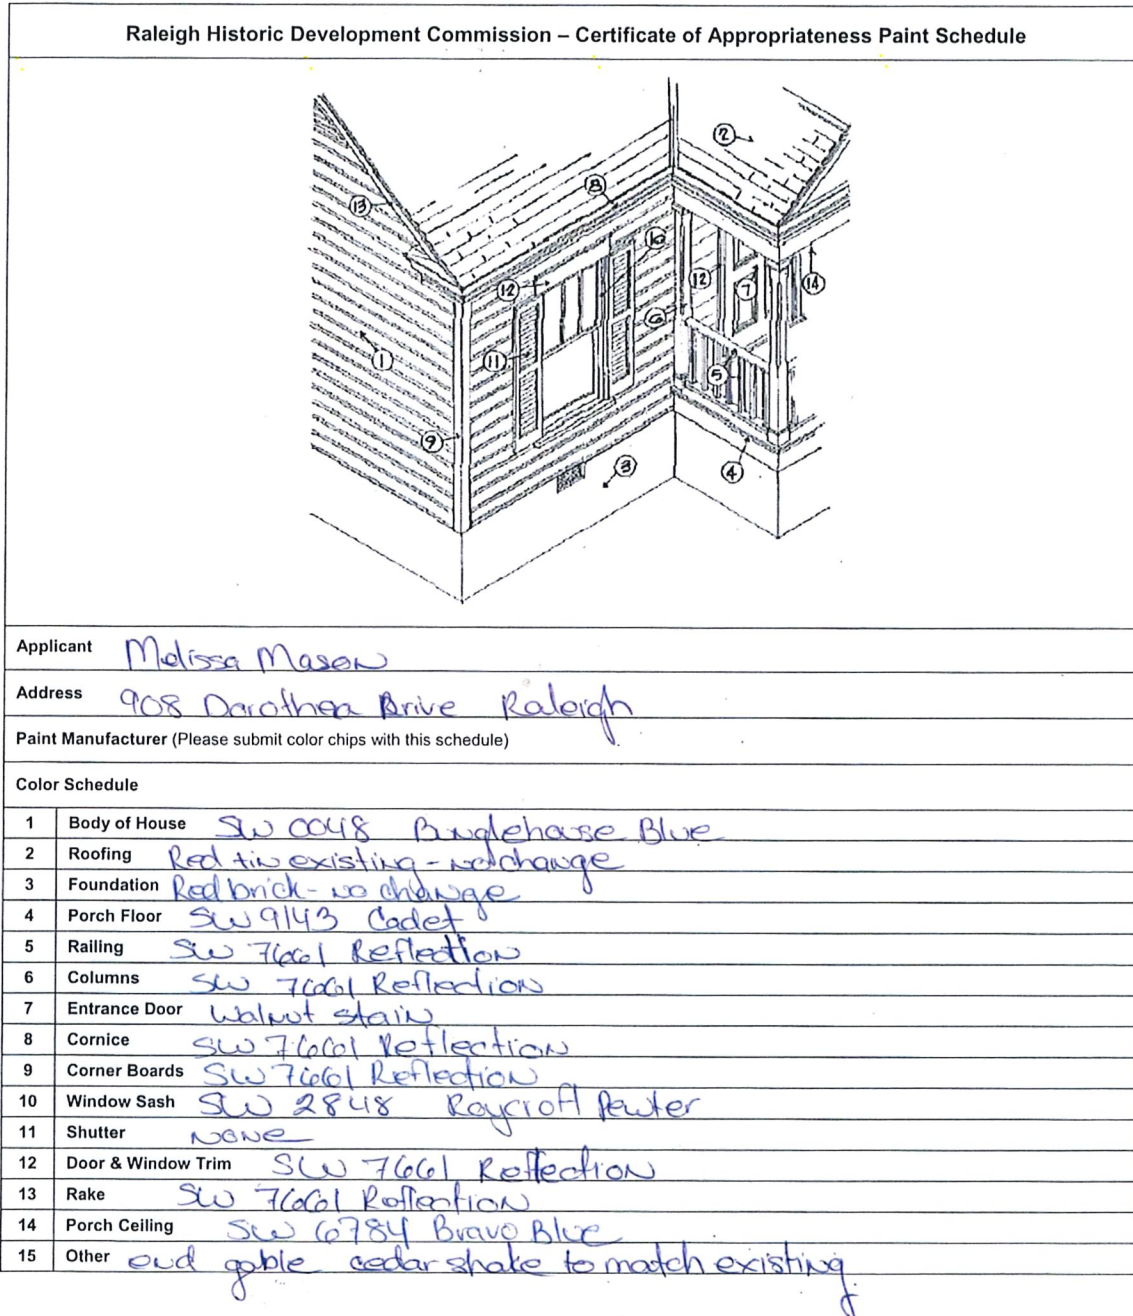 Raleigh Historic Development Commission – Certificate of Appropriateness Paint Schedule
2
13
8
10
12
12
7
14
6
1
11
5
9
3
4
Applicant Melissa Mason
Address 908 Dorothea Drive Raleigh
Paint Manufacturer (Please submit color chips with this schedule)
Color Schedule
1 Body of House SW 0048 Bunglehouse Blue
2 Roofing Red tin existing - no change
3 Foundation Red brick - no change
4 Porch Floor SW 9143 Cadet
5 Railing SW 7661 Reflection
6 Columns SW 7661 Reflection
7 Entrance Door Walnut stain
8 Cornice SW 7661 Reflection
9 Corner Boards SW 7661 Reflection
10 Window Sash SW 2848 Roycroft Pewter
11 Shutter NONE
12 Door & Window Trim SW 7661 Reflection
13 Rake SW 7661 Reflection
14 Porch Ceiling SW 6784 Bravo Blue
15 Other end gable cedar shake to match existing.